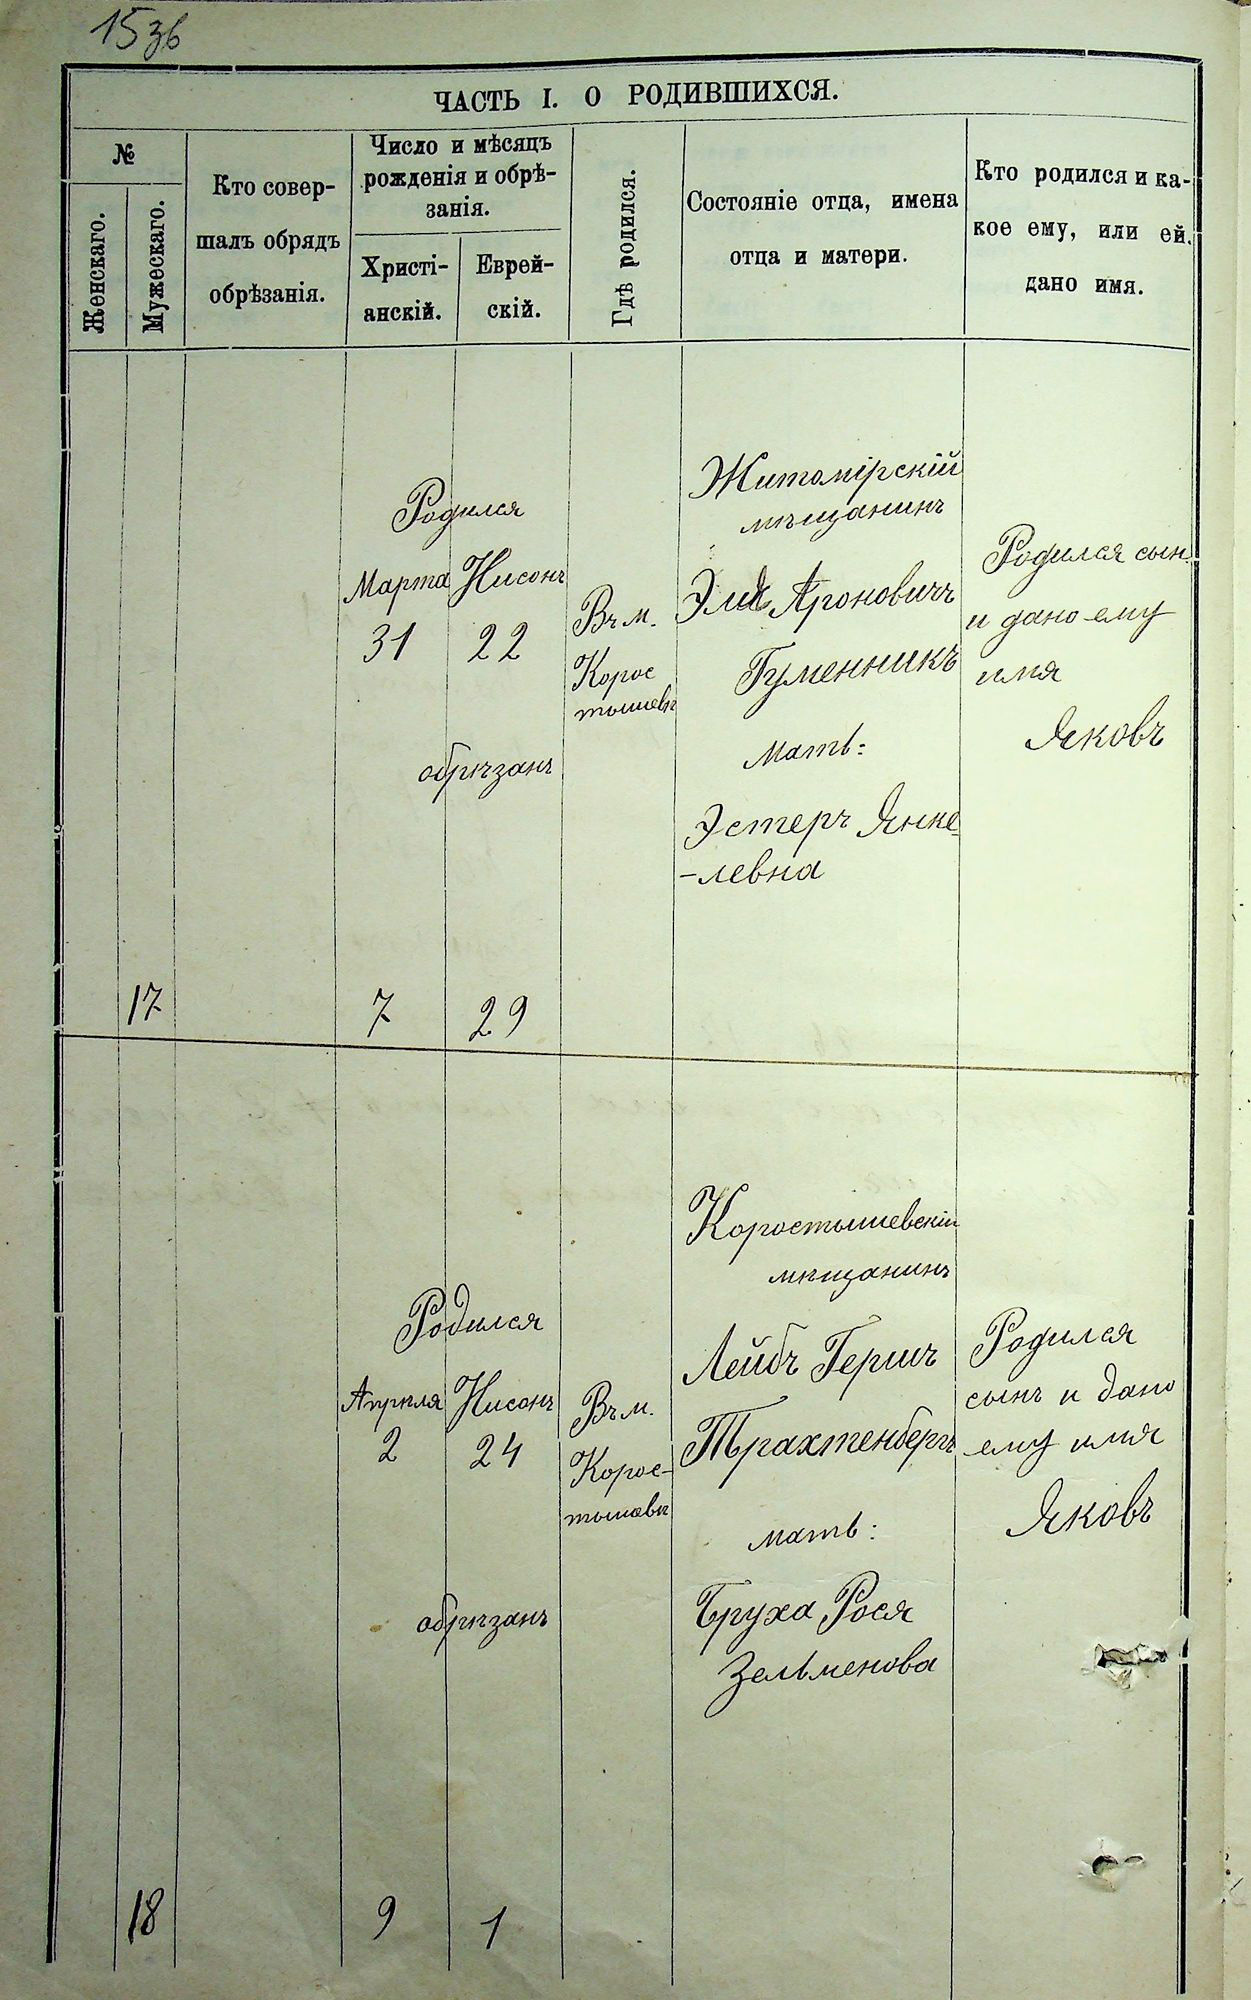 15 зв
ЧАСТЬ I. О РОДИВШИХСЯ.
№
Женскаго.
Мужескаго.
Кто совер-
шалъ обрядъ
обрѣзанія.
Число и мѣсяцъ
рожденія и обрѣ-
занія.
Христі-
анскій.
Еврей-
скій.
Гдѣ родился.
Состояніе отца, имена
отца и матери.
Кто родился и ка-
кое ему, или ей,
дано имя.
17
Родился
Марта Нисонъ
31 22
обрѣзанъ
7 29
Въ м.
Корос
тышевѣ
Житомірскій
мѣщанинъ
Ароновичъ
Гуменникъ
мать:
Эстеръ Янке-
-левна
Родился сын
и дано ему
имя
Яковъ
18
Родился
Апрѣля Нисонъ
2 24
обрѣзанъ
9 1
Въ м.
Корос-
тышевѣ
Коростышевскій
мѣщанинъ
Лейбъ Гершъ
Трахтенбергъ
мать:
Бруха Рося
Зельменова
Родился
сынъ и дано
ему имя
Яковъ